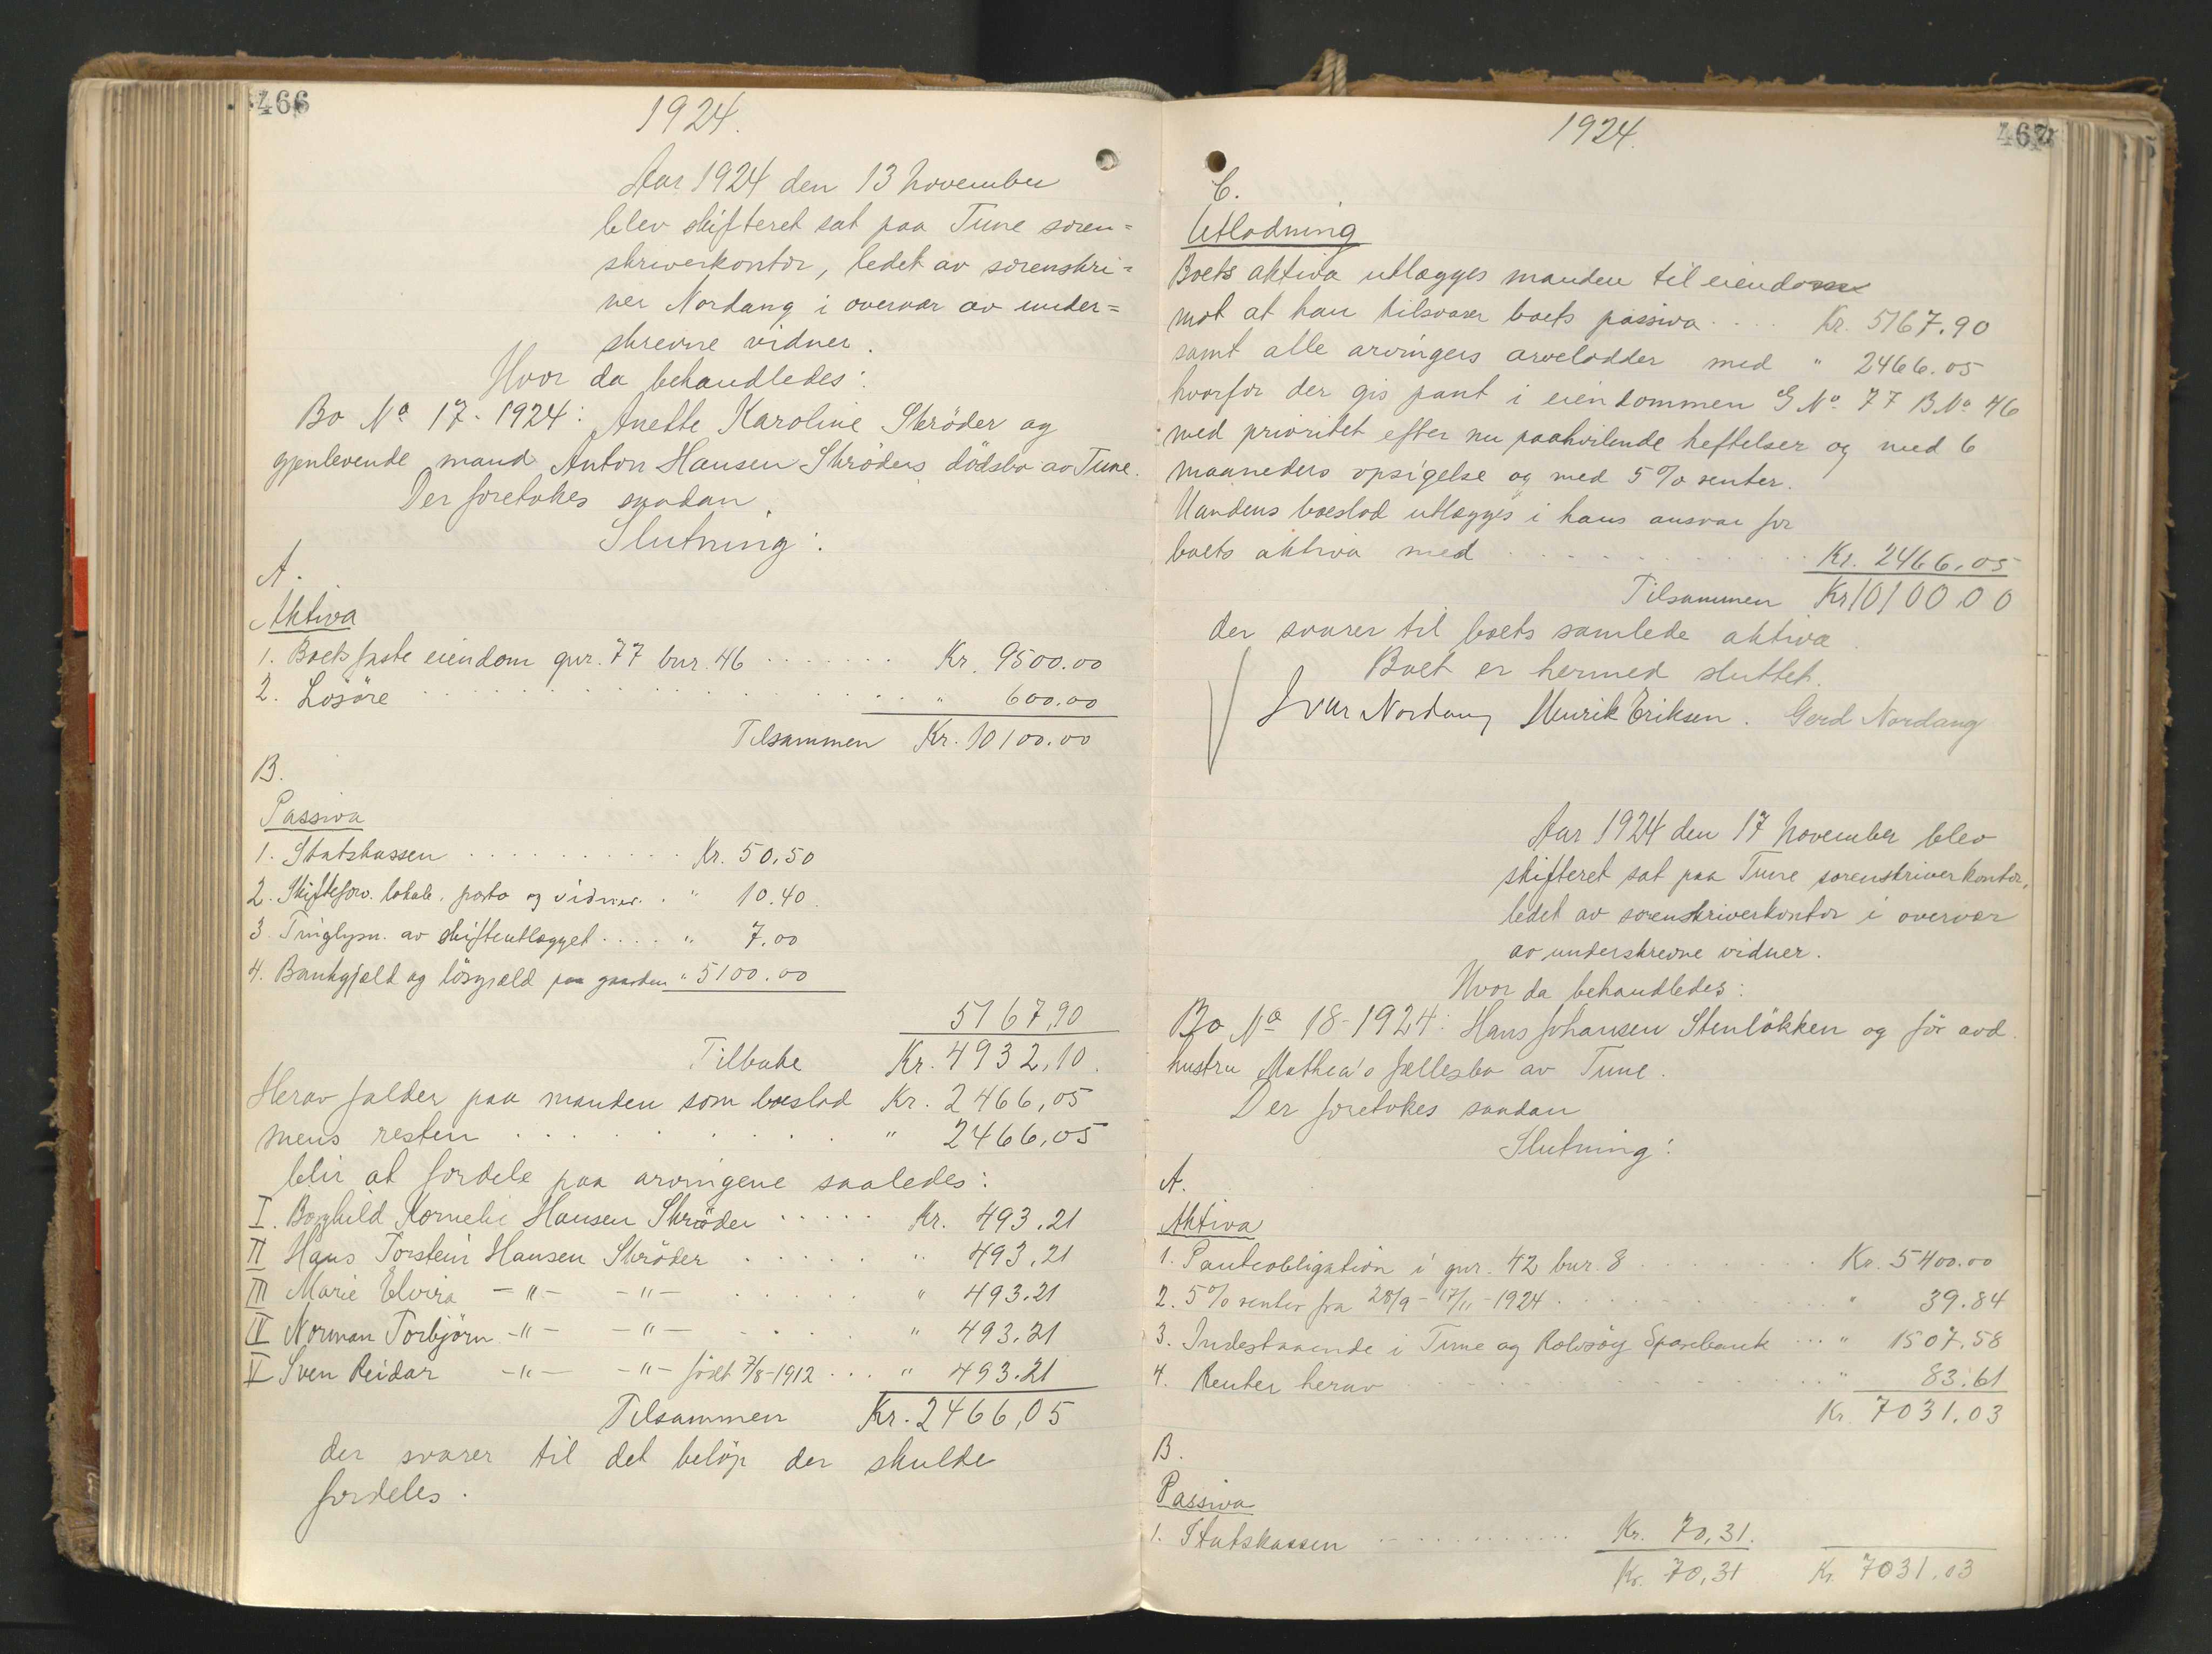 466
1924.
Aar 1924 den 13 november
blev skifteret sat paa Tune soren=
skriverkontor, ledet av sorenskri=
ver Nordang i overvær av under=
skrevne vidner.
Hvor da behandledes:
Bo No 17-1924: Anette Karoline Skröder og
gjenlevende mand Anton Hansen Skröders dödsbo av Tune.
Der foretokes saadan
Slutning:
A.
Aktiva
1. Boets faste eiendom gnr. 77 bnr. 46 ....... Kr. 9500.00
2. Lösöre .......... " 600.00
Tilsammen Kr. 10100.00
B.
Passiva
1. Statskassen .......... Kr. 50,50
2. Skifteforv. lokale, porto og vidner. " 10.40
3. Tinglysn. av skifteutlægget .... " 7.00
4. Bankgjæld og lösgjæld paa gaarden " 5100.00
5167,90
Tilbake Kr. 4932,10.
Herav falder paa manden som boeslod Kr. 2466,05
mens resten .......... " 2466,05
blir at fordele paa arvingene saaledes:
I. Borghild Kornelie Hansen Skröder ..... Kr. 493.21
II Hans Torstein Hansen Skröder ..... " 493,21
III Marie Elvira -"- -"- ..... " 493.21
IV Norman Torbjörn -"- -"- ..... " 493,21
V Sven Reidar -"- -"- födt 7/8-1912 ... " 493.21
Tilsammen Kr. 2466,05
der svarer til det belöp der skulde
fordeles.
467
1924.
C.
Utlodning
Boets aktiva utlægges manden til eiendom
mot at han tilsvarer boets passiva .... Kr. 5167,90
samt alle arvingers arvelodder med " 2466.05
hvorfor der gis pant i eiendommen G No 77 B No 46
med prioritet efter nu paahvilende heftelser og med 6
maaneders opsigelse og med 5% renter.
Mandens boeslod utlægges i hans ansvar for
boets aktiva med .......... Kr. 2466,05
Tilsammen Kr 10100,00
der svarer til boets samlede aktiva.
Boet er hermed sluttet.
Ivar Nordang Henrik Eriksen. Gerd Nordang
Aar 1924 den 17 november blev
skifteret sat paa Tune sorenskriverkontor,
ledet av sorenskriverkontor i overvær
av underskrevne vidner.
Hvor da behandledes:
Bo No 18-1924: Hans Johansen Stenlökken og för avd.
hustru Mathea's fællesbo av Tune.
Der foretokes saadan
Slutning:
A.
Aktiva
1. Panteobligation i gnr. 42 bnr. 8 ........ Kr. 5400.00
2. 5% renter fra 28/9 - 17/11 - 1924 .......... " 39.84
3. Indestaaende i Tune og Rolvsöy Sparebank ... " 1507.58
4. Renter herav .......... " 83.61
Kr. 7031.03
B.
Passiva
1. Statskassen .......... Kr. 70,31.
Kr. 70,31 Kr. 7031.03